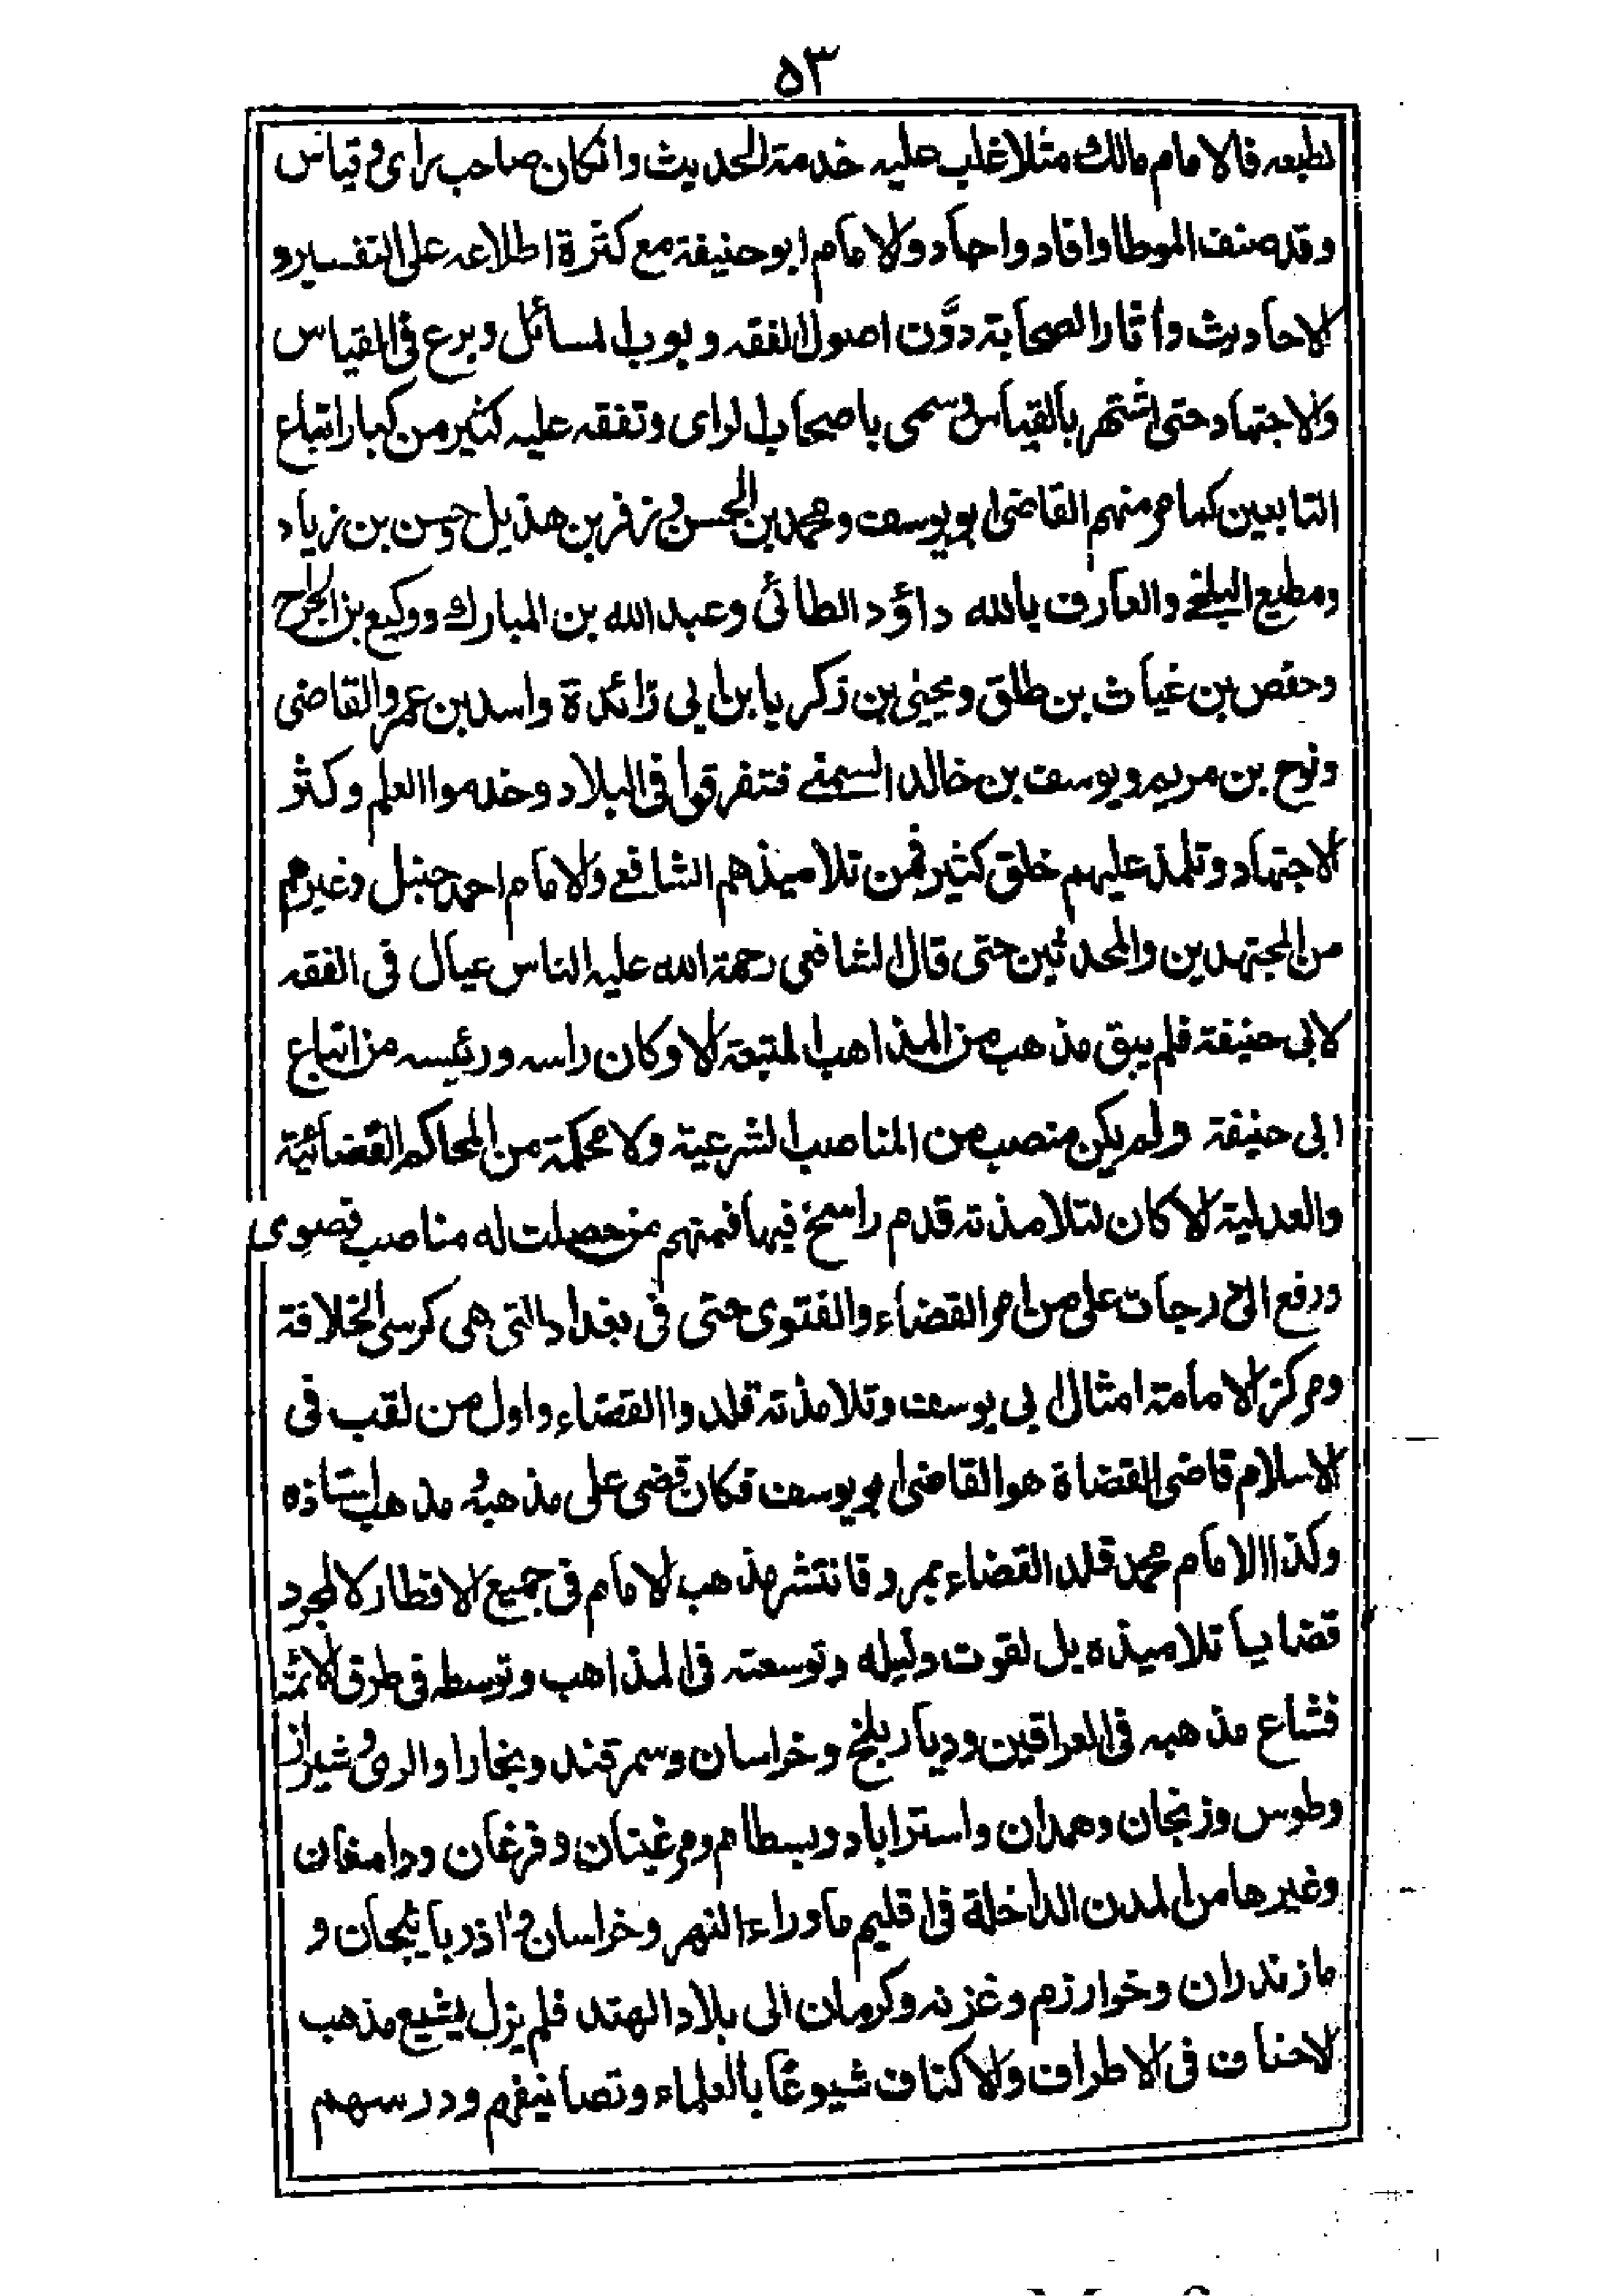 ٥٣
لطبعه فالامام مالك مثلا غلب عليه خدمة الحديث وانكان صاحب رای وقياس
وقد صنف الموطا وافاد واجاد والامام ابو حنيفة مع كثرة اطلاعه على التفسير و
الاحاديث واثار الصحابة دوّن اصول الفقه وبوب المسائل وبرع فی القياس
والاجتهاد حتى اشتهر بالقياس وسمی باصحاب الرای وتفقه عليه كثير من كبار اتباع
التابعين كما مر منهم القاضی ابو يوسف ومحمد بن الحسن وزفر بن هذيل وحسن بن زياد
ومطيع البلخی والعارف بالله داؤد الطائی وعبد الله بن المبارك ووكيع بن الجراح
وحفص بن غياث بن طلق ويحيی بن زكريا بن ابی زائدة واسد بن عمرو القاضی
ونوح بن مريم ويوسف بن خالد السمتی فتفرقوا فی البلاد وخدموا العلم وكثر
الاجتهاد وتلمذ عليهم خلق كثير فمن تلاميذهم الشافعی والامام احمد حنبل وغيرهم
من المجتهدين والمحدثين حتی قال الشافعی رحمة الله عليه الناس عيال فی الفقه
لابی حنيفة فلم يبق مذهب من المذاهب المتبعة الا وكان راسه ورئيسه من اتباع
ابی حنيفة ولم يكن منصب من المناصب الشرعية ولا محكمة من المحاكم القضائية
والعدلية الا كان لتلامذته قدم راسخ فيها فمنهم من حصلت له مناصب قصوی
ورفع الی درجات علی من امر القضاء والفتوی حتی فی بغداد التی هی كرسی الخلافة
ومركز الامامة امثال ابی يوسف وتلامذته قلدوا القضاء واول من لقب فی
الاسلام قاضی القضاة هو القاضی ابو يوسف فكان قضی علی مذهبه مذهب استاذه
وكذا الامام محمد قلد القضاء بمرو فانتشر مذهب الامام فی جميع الاقطار لا لمجرد
قضايا تلاميذه بل لقوت دليله وتوسعته فی المذاهب وتوسطه فی طرق الائمة
فشاع مذهبه فی العراقين وديار بلخ وخراسان وسمرقند وبخارا والری وشيراز
وطوس وزنجان وهمدان واستراباد وبسطام ومرغينان وفرغان ودامغان
وغيرها من المدن الداخلة فی اقليم ماوراء النهر وخراسان و اذربائيجان و
مازندران وخوارزم وغزنه وكرمان الی بلاد الهند فلم يزل يشيع مذهب
الاحناف فی الاطراف والاكناف شيوعًا بالعلماء وتصانيفهم ودرسهم